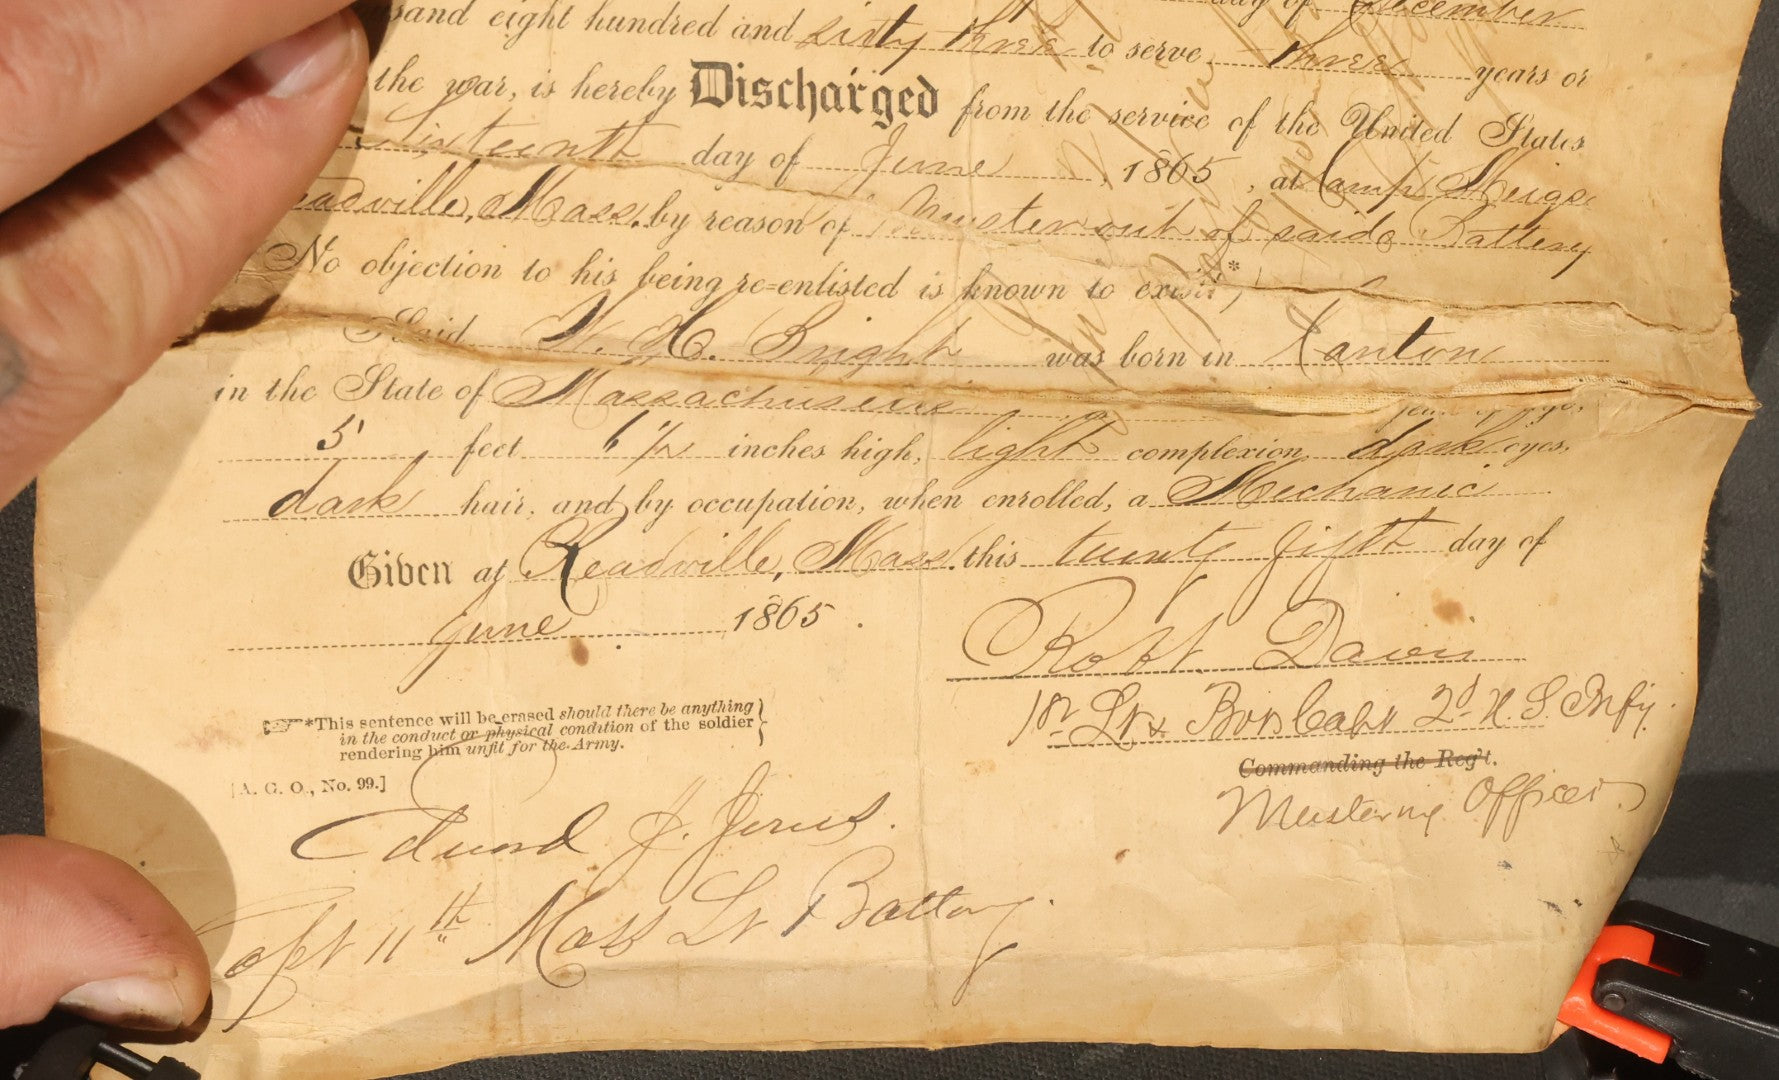 sand eight hundred and sixty three to serve three years or
the war, is hereby Discharged from the service of the United States
Sixteenth day of June, 1865, at Camp Meigs
eadville, Mass. by reason of Muster out of said Battery
No objection to his being re-enlisted is known to exist.*
Said W. H. Bright was born in Canton
in the State of Massachusetts
5 feet 6 1/2 inches high, light complexion, dark eyes,
dark hair, and by occupation, when enrolled, a Mechanic
Given at Readville, Mass. this twenty fifth day of
June 1865.
Robt. Davis
1st Lt & 2d U.S. Infy.
Commanding the Reg't.
Mustering Officer.
*This sentence will be erased should there be anything
in the conduct or physical condition of the soldier
rendering him unfit for the Army.
[A. G. O., No. 99.]
Edward J. Jones.
Capt 11th Mass Lt Battery.